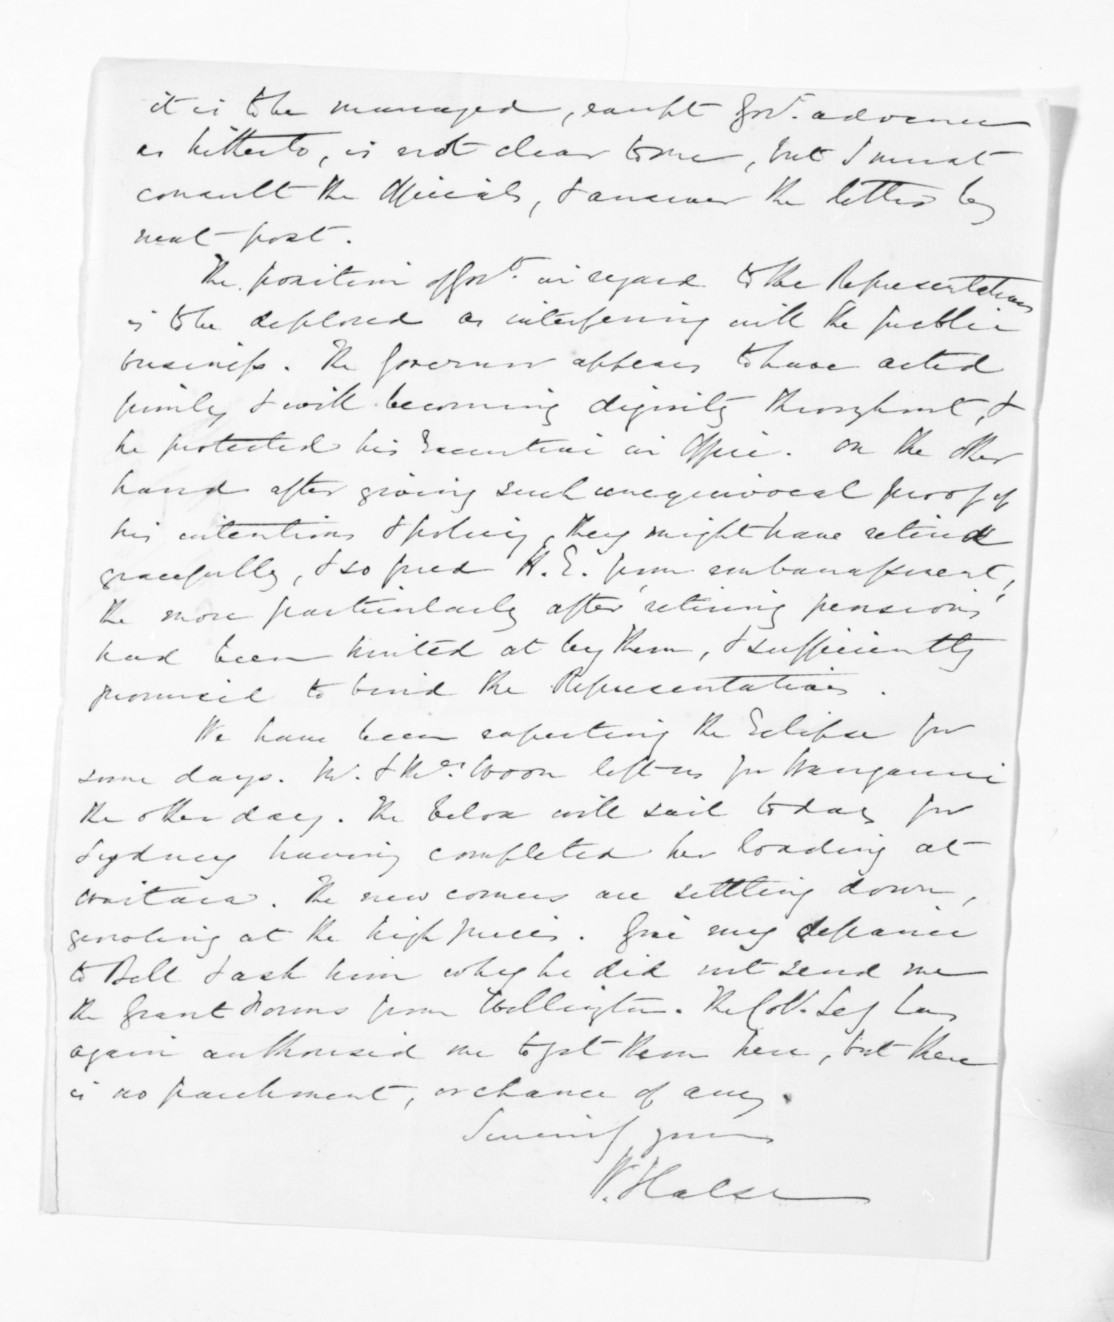 it is to be managed, except Govt. advance
as hitherto, is not clear to me, but I must
consult the Officials, & answer the letter by
next post.
The position of Govt. in regard to the Representatives
is to be deplored as interfering with the public
business. The Governor appears to have acted
firmly & with becoming dignity throughout, &
he protected his Executive in Office. On the other
hand after giving such unequivocal proof of
his intentions & policy, they might have retired
gracefully, & so freed H.E. from embarrassment,
the more particularly after 'retiring pensions'
had been hinted at by them, & sufficiently
promised to bind the Representatives.
We have been expecting the Eclipse for
some days. Mr. & Mrs. Woon left us for Wanganui
the other day. The will sail today for
Sydney having completed her loading at
Waitara. The new comers are settling down,
growling at the high prices. Give my defiance
to Bell & ask him why he did not send me
the Grant Forms from Wellington. The Col. Sec has
again authorised me to get them here, but there
is no parchment, or chance of any.
Sincerely yours
W. Halse